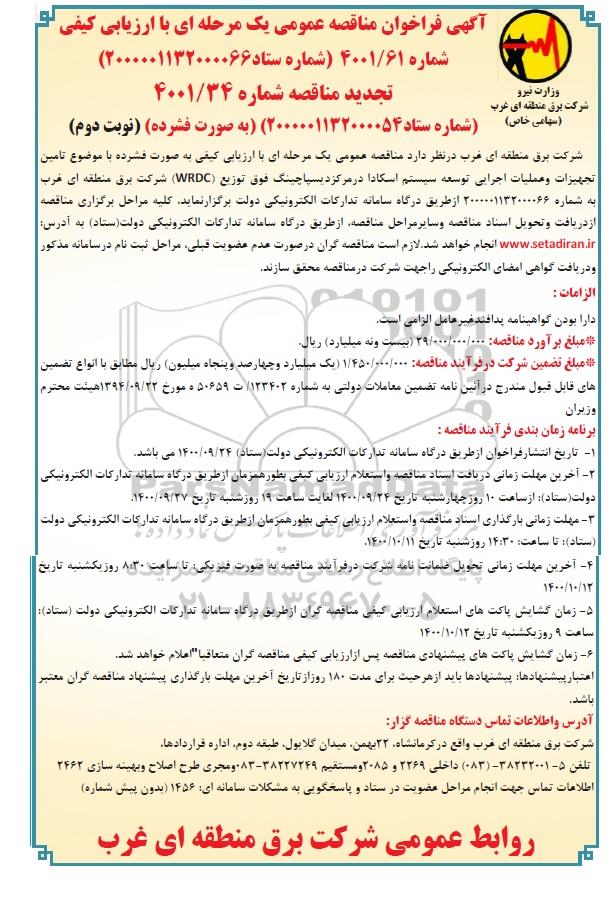 آگهی فراخوان مناقصه عمومی یک مرحله ای با ارزیابی کیفی
شماره ۴۰۰۱/۶۱ (شماره ستاد۲۰۰۰۰۰۱۱۳۲۰۰۰۰۶۶)
تجدید مناقصه شماره ۴۰۰۱/۳۴
(شماره ستاد۲۰۰۰۰۰۱۱۳۲۰۰۰۰۵۴) (به صورت فشرده) (نوبت دوم)
وزارت نیرو
شرکت برق منطقه ای غرب
(سهامی خاص)
شرکت برق منطقه ای غرب درنظر دارد مناقصه عمومی یک مرحله ای با ارزیابی کیفی به صورت فشرده با موضوع تامین
تجهیزات وعملیات اجرایی توسعه سیستم اسکادا درمرکزدیسپاچینگ فوق توزیع (WRDC) شرکت برق منطقه ای غرب
به شماره ۲۰۰۰۰۰۱۱۳۲۰۰۰۰۶۶ ازطریق درگاه سامانه تدارکات الکترونیکی دولت برگزارنماید، کلیه مراحل برگزاری مناقصه
ازدریافت وتحویل اسناد مناقصه وسایرمراحل مناقصه، ازطریق درگاه سامانه تدارکات الکترونیکی دولت(ستاد) به آدرس:
www.setadiran.ir انجام خواهد شد.لازم است مناقصه گران درصورت عدم عضویت قبلی، مراحل ثبت نام درسامانه مذکور
ودریافت گواهی امضای الکترونیکی راجهت شرکت درمناقصه محقق سازند.
الزامات :
دارا بودن گواهینامه پدافندغیرعامل الزامی است.
*مبلغ برآورد مناقصه: ۲۹/۰۰۰/۰۰۰/۰۰۰ (بیست ونه میلیارد) ریال.
*مبلغ تضمین شرکت درفرآیند مناقصه: ۱/۴۵۰/۰۰۰/۰۰۰ (یک میلیارد وچهارصد وپنجاه میلیون) ریال مطابق با انواع تضمین
های قابل قبول مندرج درآئین نامه تضمین معاملات دولتی به شماره ۱۲۳۴۰۲/ ت ۵۰۶۵۹ ه مورخ ۱۳۹۴/۰۹/۲۲هیئت محترم
وزیران
برنامه زمان بندی فرآیند مناقصه :
۱- تاریخ انتشارفراخوان ازطریق درگاه سامانه تدارکات الکترونیکی دولت(ستاد) ۱۴۰۰/۰۹/۲۴ می باشد.
۲- آخرین مهلت زمانی دریافت اسناد مناقصه واستعلام ارزیابی کیفی بطورهمزمان ازطریق درگاه سامانه تدارکات الکترونیکی
دولت(ستاد): ازساعت ۱۰ روزچهارشنبه تاریخ ۱۴۰۰/۰۹/۲۴ لغایت ساعت ۱۹ روزشنبه تاریخ ۱۴۰۰/۰۹/۲۷.
۳- مهلت زمانی بارگذاری اسناد مناقصه واستعلام ارزیابی کیفی بطورهمزمان ازطریق درگاه سامانه تدارکات الکترونیکی دولت
(ستاد): تا ساعت: ۱۴:۳۰ روزشنبه تاریخ ۱۴۰۰/۱۰/۱۱.
۴- آخرین مهلت زمانی تحویل ضمانت نامه شرکت درفرآیند مناقصه به صورت فیزیکی: تا ساعت ۸:۳۰ روزیکشنبه تاریخ
۱۴۰۰/۱۰/۱۲
۵- زمان گشایش پاکت های استعلام ارزیابی کیفی مناقصه گران ازطریق درگاه سامانه تدارکات الکترونیکی دولت (ستاد):
ساعت ۹ روزیکشنبه تاریخ ۱۴۰۰/۱۰/۱۲
۶- زمان گشایش پاکت های پیشنهادی مناقصه پس ازارزیابی کیفی مناقصه گران متعاقبا"اعلام خواهد شد.
اعتبارپیشنهادها: پیشنهادها باید ازهرحیث برای مدت ۱۸۰ روزازتاریخ آخرین مهلت بارگذاری پیشنهاد مناقصه گران معتبر
باشد.
آدرس واطلاعات تماس دستگاه مناقصه گزار:
شرکت برق منطقه ای غرب واقع درکرمانشاه، ۲۲بهمن، میدان گلایول، طبقه دوم، اداره قراردادها.
تلفن ۵- ۳۸۲۳۲۰۰۱- (۰۸۳) داخلی ۲۲۶۹ و ۲۰۸۵ومستقیم ۳۸۲۲۷۲۴۹-۰۸۳ومجری طرح اصلاح وبهینه سازی ۲۴۶۲
اطلاعات تماس جهت انجام مراحل عضویت در ستاد و پاسخگویی به مشکلات سامانه ای: ۱۴۵۶ (بدون پیش شماره)
روابط عمومی شرکت برق منطقه ای غرب